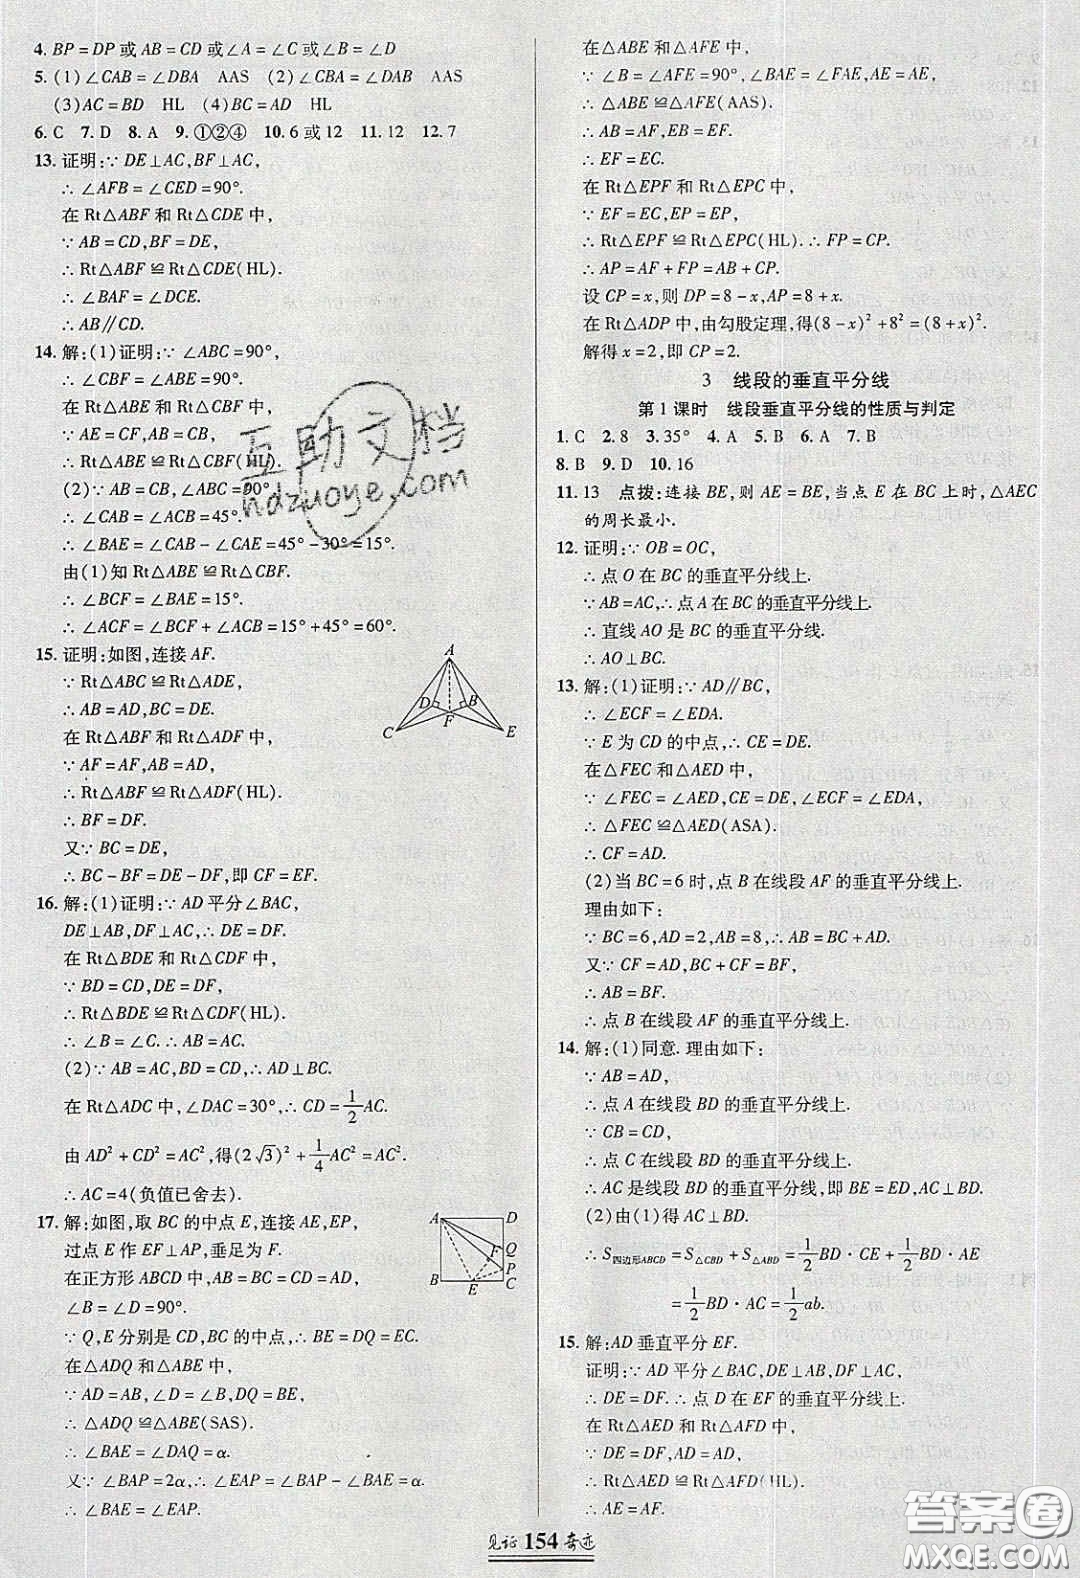 4. BP=DP或AB=CD或∠A=∠C或∠B=∠D
5. (1)∠CAB=∠DBA AAS (2)∠CBA=∠DAB AAS
(3)AC=BD HL (4)BC=AD HL
6. C 7. D 8. A 9. ①②④ 10. 6或12 11. 12 12. 7
13. 证明:∵DE⊥AC,BF⊥AC,
∴∠AFB=∠CED=90°.
在Rt△ABF和Rt△CDE中,
∵AB=CD,BF=DE,
∴Rt△ABF≌Rt△CDE(HL).
∴∠BAF=∠DCE.
∴AB∥CD.
14. 解:(1)证明:∵∠ABC=90°,
∴∠CBF=∠ABE=90°.
在Rt△ABE和Rt△CBF中,
∵AE=CF,AB=CB,
∴Rt△ABE≌Rt△CBF(HL).
(2)∵AB=CB,∠ABC=90°,
∴∠CAB=∠ACB=45°.
∴∠BAE=∠CAB-∠CAE=45°-30°=15°.
由(1)知Rt△ABE≌Rt△CBF.
∴∠BCF=∠BAE=15°.
∴∠ACF=∠BCF+∠ACB=15°+45°=60°.
15. 证明:如图,连接AF.
∵Rt△ABC≌Rt△ADE,
∴AB=AD,BC=DE.
在Rt△ABF和Rt△ADF中,
∵AF=AF,AB=AD,
∴Rt△ABF≌Rt△ADF(HL).
∴BF=DF.
又∵BC=DE,
∴BC-BF=DE-DF,即CF=EF.
A
D B
C F E
16. 解:(1)证明:∵AD平分∠BAC,
DE⊥AB,DF⊥AC,∴DE=DF.
在Rt△BDE和Rt△CDF中,
∵BD=CD,DE=DF,
∴Rt△BDE≌Rt△CDF(HL).
∴∠B=∠C.∴AB=AC.
(2)∵AB=AC,BD=CD,∴AD⊥BC.
在Rt△ADC中,∠DAC=30°,∴CD=1/2AC.
由AD²+CD²=AC²,得(2√3)²+1/4AC²=AC².
∴AC=4(负值已舍去).
17. 解:如图,取BC的中点E,连接AE,EP,
过点E作EF⊥AP,垂足为F.
在正方形ABCD中,AB=BC=CD=AD,
∠B=∠D=90°.
∵Q,E分别是CD,BC的中点,∴BE=DQ=EC.
在△ADQ和△ABE中,
∵AD=AB,∠D=∠B,DQ=BE,
∴△ADQ≌△ABE(SAS).
∴∠BAE=∠DAQ=α.
又∵∠BAP=2α,∴∠EAP=∠BAP-∠BAE=α.
∴∠BAE=∠EAP.
A D
Q
F
P
B E C
在△ABE和△AFE中,
∵∠B=∠AFE=90°,∠BAE=∠FAE,AE=AE,
∴△ABE≌△AFE(AAS).
∴AB=AF,EB=EF.
∴EF=EC.
在Rt△EPF和Rt△EPC中,
∵EF=EC,EP=EP,
∴Rt△EPF≌Rt△EPC(HL).∴FP=CP.
∴AP=AF+FP=AB+CP.
设CP=x,则DP=8-x,AP=8+x.
在Rt△ADP中,由勾股定理,得(8-x)²+8²=(8+x)².
解得x=2,即CP=2.
3 线段的垂直平分线
第1课时 线段垂直平分线的性质与判定
1. C 2. 8 3. 35° 4. A 5. B 6. A 7. B
8. B 9. D 10. 16
11. 13 点拨:连接BE,则AE=BE,当点E在BC上时,△AEC
的周长最小.
12. 证明:∵OB=OC,
∴点O在BC的垂直平分线上.
∵AB=AC,∴点A在BC的垂直平分线上.
∴直线AO是BC的垂直平分线.
∴AO⊥BC.
13. 解:(1)证明:∵AD∥BC,
∴∠ECF=∠EDA.
∵E为CD的中点,∴CE=DE.
在△FEC和△AED中,
∵∠FEC=∠AED,CE=DE,∠ECF=∠EDA,
∴△FEC≌△AED(ASA).
∴CF=AD.
(2)当BC=6时,点B在线段AF的垂直平分线上.
理由如下:
∵BC=6,AD=2,AB=8,∴AB=BC+AD.
又∵CF=AD,BC+CF=BF,
∴AB=BF.
∴点B在线段AF的垂直平分线上.
14. 解:(1)同意.理由如下:
∵AB=AD,
∴点A在线段BD的垂直平分线上.
∵CB=CD,
∴点C在线段BD的垂直平分线上.
∴AC是线段BD的垂直平分线,即BE=ED,AC⊥BD.
(2)由(1)得AC⊥BD.
∴S四边形ABCD=S△CBD+S△ABD=1/2BD·CE+1/2BD·AE
=1/2BD·AC=1/2ab.
15. 解:AD垂直平分EF.
证明:∵AD平分∠BAC,DE⊥AB,DF⊥AC,
∴DE=DF.∴点D在EF的垂直平分线上.
在Rt△AED和Rt△AFD中,
∵DE=DF,AD=AD,
∴Rt△AED≌Rt△AFD(HL).
∴AE=AF.
见证 154 奇迹
互助文档
hdzuoye.com
答案圈
MXQE.COM